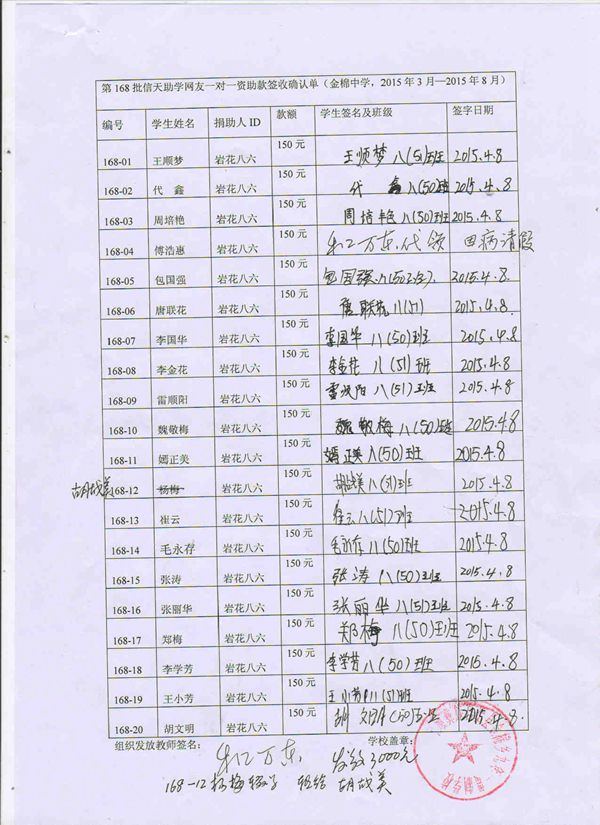 第168批信天助学网友一对一资助款签收确认单（金棉中学，2015年3月—2015年8月）
编号 学生姓名 捐助人ID 款额 学生签名及班级 签字日期
168-01 王顺梦 岩花八六 150元 王顺梦 八(51)班 2015.4.8
168-02 代 鑫 岩花八六 150元 代 鑫 八(50)班 2015.4.8
168-03 周培艳 岩花八六 150元 周培艳 八(50)班 2015.4.8
168-04 傅浩惠 岩花八六 150元 万东代领 因病请假
168-05 包国强 岩花八六 150元 包国强 八(50) 2015.4.8.
168-06 唐联花 岩花八六 150元 唐联花 八(51) 2015.4.8
168-07 李国华 岩花八六 150元 李国华 八(50)班 2015.4.8
168-08 李金花 岩花八六 150元 李金花 八(51)班 2015.4.8
168-09 雷顺阳 岩花八六 150元 雷顺阳 八(51)班 2015.4.8
168-10 魏敬梅 岩花八六 150元 魏敬梅 八(50)班 2015.4.8
168-11 嫣正美 岩花八六 150元 嫣正美 八(50)班 2015.4.8
胡战美 168-12 杨梅 岩花八六 150元 胡战美 八(51)班 2015.4.8
168-13 崔云 岩花八六 150元 崔云 八(51)班 2015.4.8
168-14 毛永存 岩花八六 150元 毛永存 八(50)班 2015.4.8
168-15 张涛 岩花八六 150元 张涛 八(50)班 2015.4.8
168-16 张丽华 岩花八六 150元 张丽华 八(51)班 2015.4.8
168-17 郑梅 岩花八六 150元 郑梅 八(50)班 2015.4.8
168-18 李学芳 岩花八六 150元 李学芳 八(50)班 2015.4.8
168-19 王小芳 岩花八六 150元 王小芳 八(51)班 2015.4.8
168-20 胡文明 岩花八六 150元 胡文明 (50)班 2015.4.8.
组织发放教师签名： 万东 学校盖章：
发放3000元
168-12杨梅 转给 胡战美